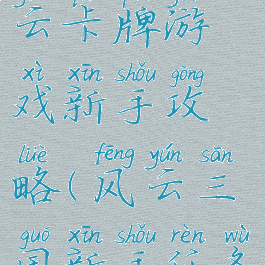 云卡牌游
xì xīn shǒu gōng
戏新手攻
lüè fēng yún sān
略(风云三
guó xīn shǒu rèn wù
国新手任务